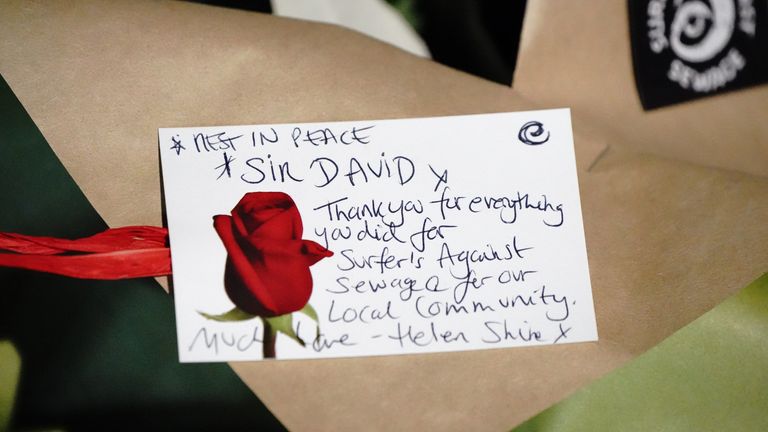 * REST IN PEACE
* Sir DAVID x
Thank you for everything
you did for
Surfer's Against
Sewage & for our
Local Community.
Much Love - Helen Shine x
SEWAGE